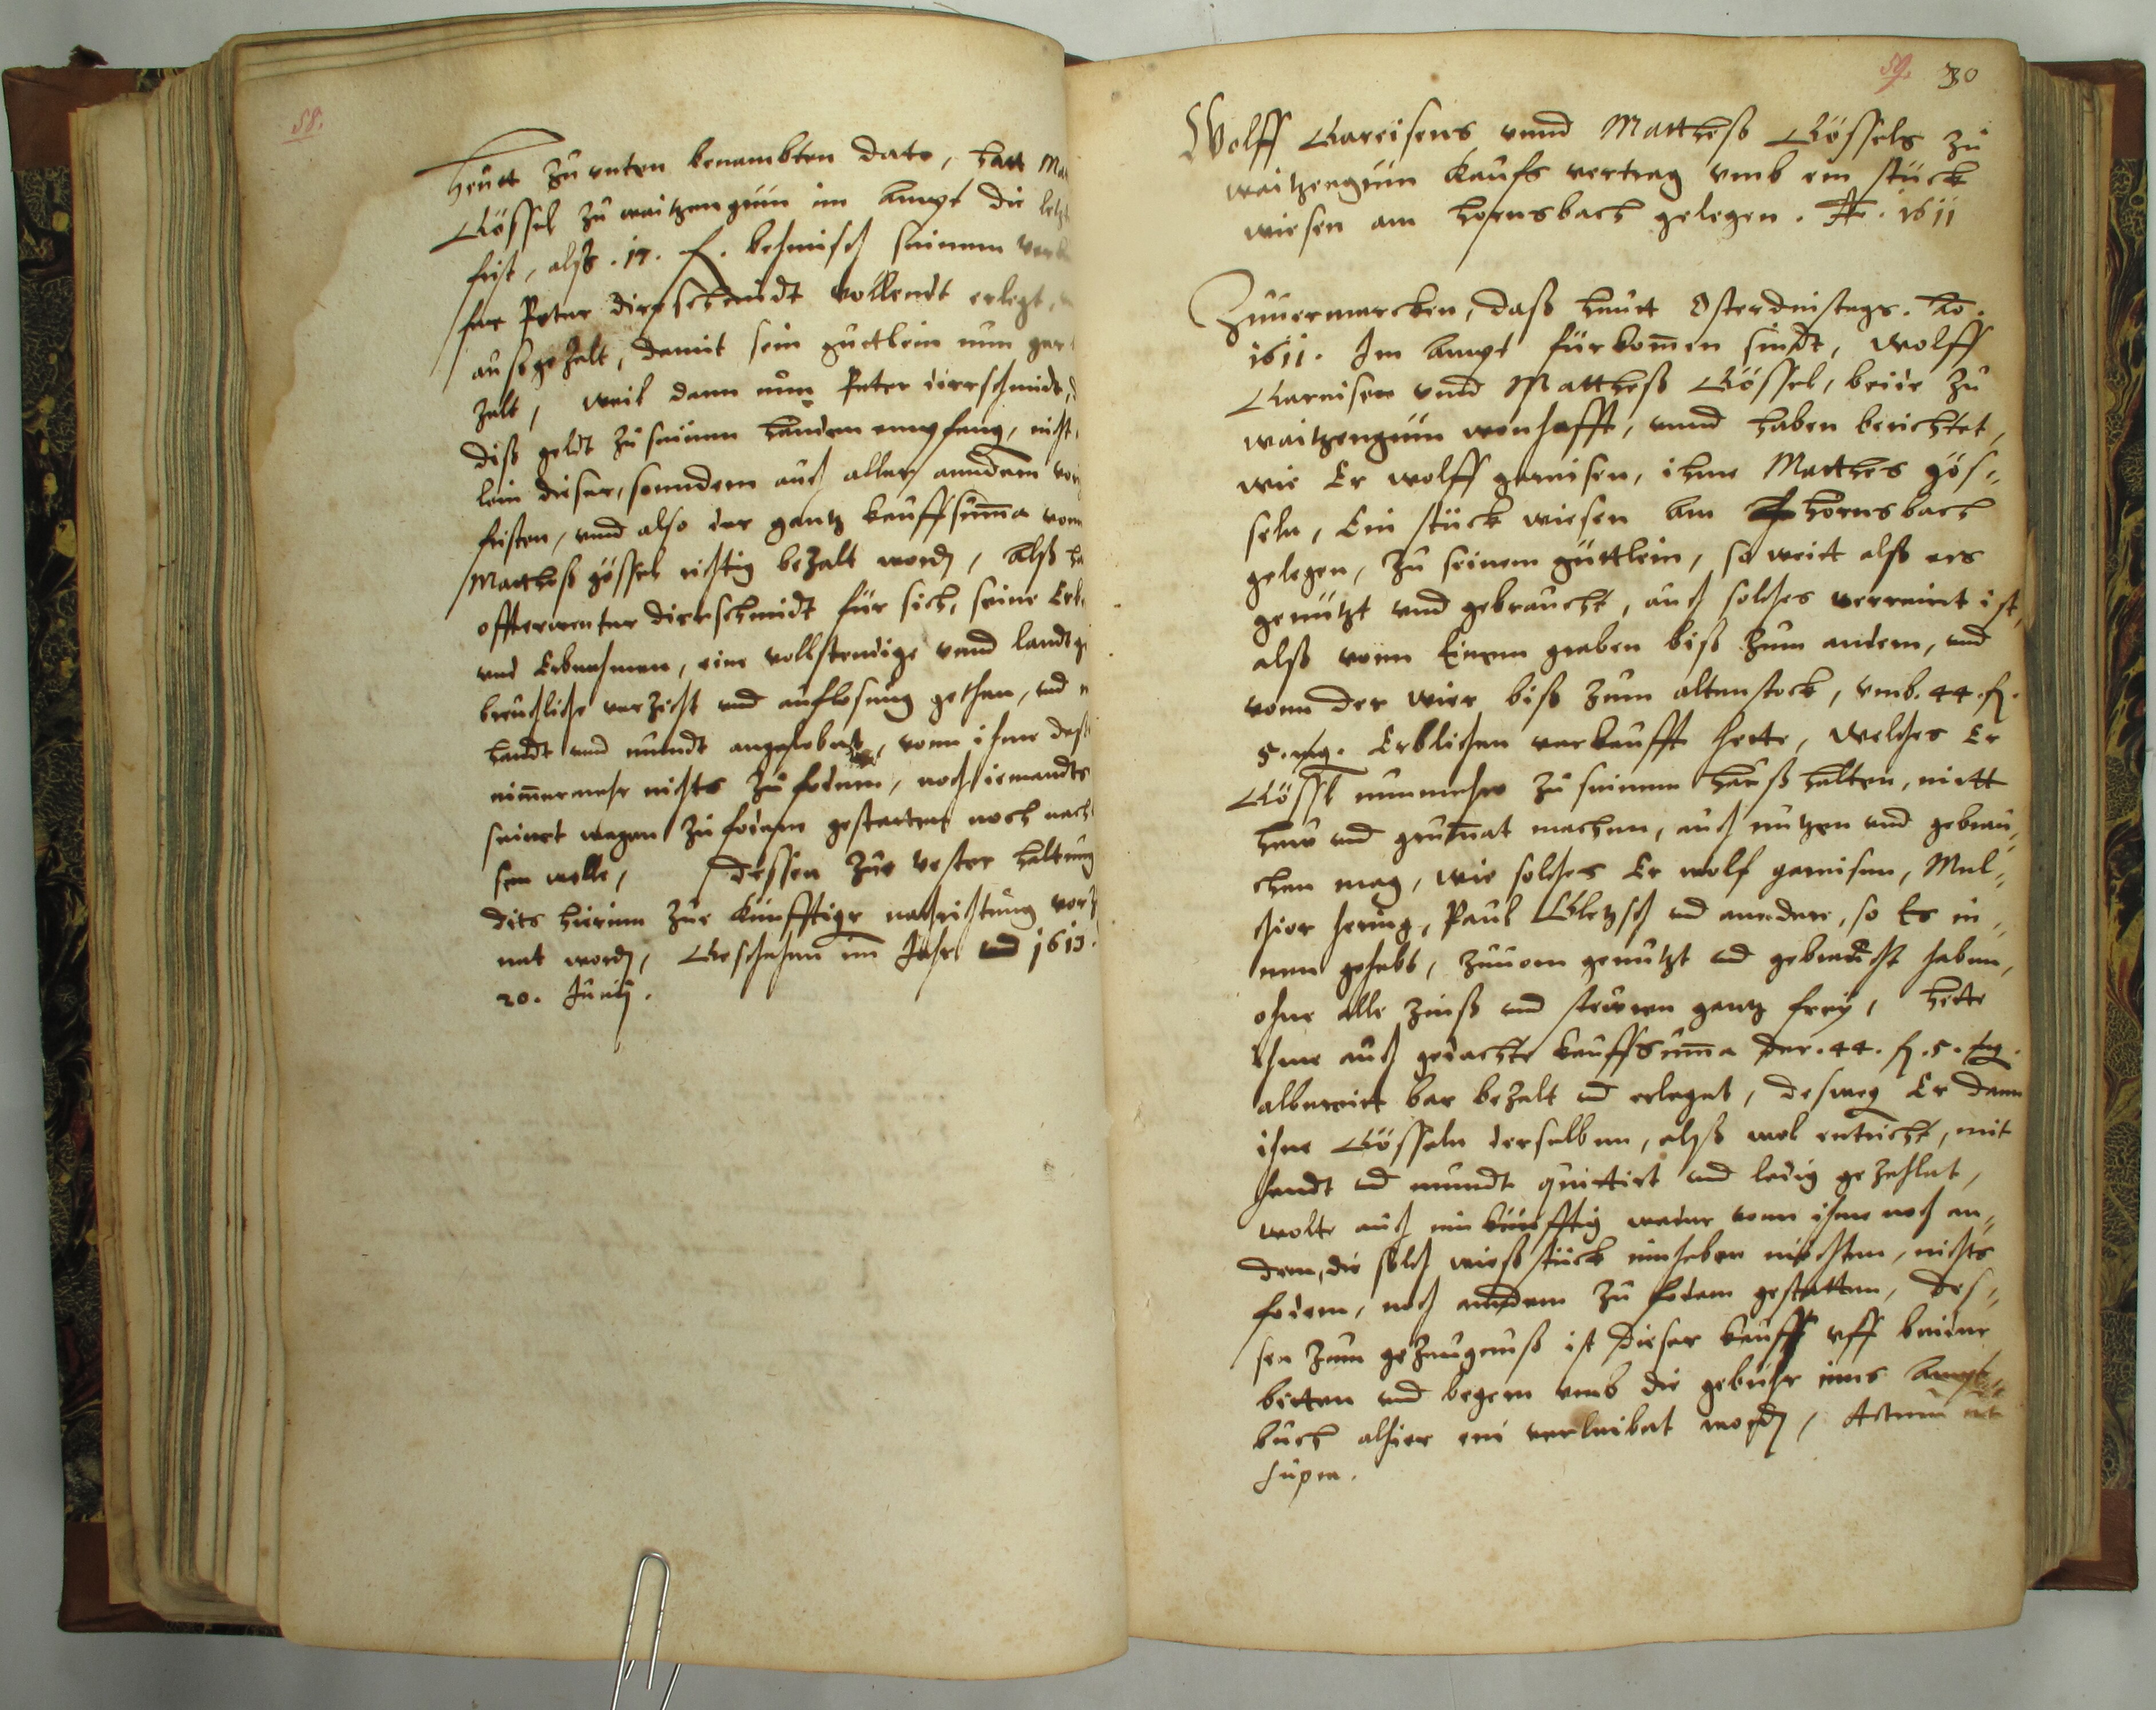 58.
Heutt Zu unten benambten dato, hatt Ma
Gössel zu waitzengrün im Ampt die letzt
frist, alß .17. f. behmisch seinem verk
fer Peter dirschmidt vollendt erlegt,
außgezalt, damit sein guettlein nun gar
zalt, weil dann nun Peter dirrschmidt,
diß geldt zu seinen handen empfang, nicht
lein dieser, sonndern auch aller anndern vori
fristen, unnd also der gantz kauffsuma vom
Matthess gössel richtig bezalt word, Alß ha
offterwenter dirrschmidt für sich, seine Erb
und Erbnehmen, eine vollstendige unnd landtg
breuchliche verzicht und auflosung gethan, und m
handt und mundt angelobet, vonn ihme des
nimmermehr nichts zu fodern, noch iemandts
seinet wegen zu fodern gestatten noch nach
sen wolle, dessen Zur vester haltung
dits hierinn zur künfftiger nachrichtung vorz
net word, Geschehen im Jahr 1613.
20. Junij.
59. 30
Wolff Gareisens unnd Matthess Gössels zu
waitzengrün kaufs vertrag umb ein stück
wiesen am hornsbach gelegen. Ao. 1611
Zuuermercken, daß heutt Osterdinstags. Ao.
1611. Im Ampt fürkomen sindt, Wolff
Gareisen unnd Matthess Gössel, beide zu
waitzengrün wonhafft, unnd haben berichtet,
wie Er wolff gareisen, ihme Matthes gös„
seln, Ein stück wiesen am hornsbach
gelegen, zu seinem güttlein, so weitt alß ers
genützt und gebraucht, auch solches verreint ist,
alß vonn Einem graben biß zum andern, und
vonn der wier biß zum altenstock, umb. 44. fl.
5. Erblichen verkaufft hette, welches Er
Gössl nunmehr zu seinem hauß halten, mitt
hew und grumat machen, auch nutzen und gebrau„
chen mag, wie solches Er wolf gareisen, Mel„
chior hering, Paul Gletzsch und anndere, so Es in„
nen gehabt, zuuorn genutzt und gebraucht haben,
ohne alle zinß und stewren gantz frey, hette
Ihme auch gedachte kauffsuma der. 44. fl. 5.
albereitt bar bezalt und erleget, desweg Er dann
ihne Gösseln derselben, alß wol entricht, mit
handt und mundt quittirt und ledig gezehlet,
wolte auch inn künfftig weder vonn ihme noch an„
dern, die solch wießstück innhaben möchten, nichts
fodern, noch anndern zu fodern gestatten, des„
sen zum gezeugnuß ist dieser kauff uff beider
bitten und begern umb die gebühr inns Ampt„
buch alhier ein verleibet word, Actum ut
supra.